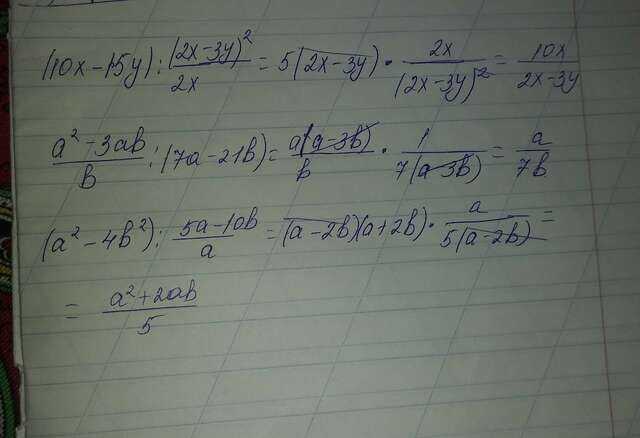 (10x-15y) : (2x-3y)²/2x = 5(2x-3y) · 2x/(2x-3y)² = 10x/2x-3y
a²-3ab/b : (7a-21b) = a(a-3b)/b · 1/7(a-3b) = a/7b
(a²-4b²) : 5a-10b/a = (a-2b)(a+2b) · a/5(a-2b) =
= a²+2ab/5